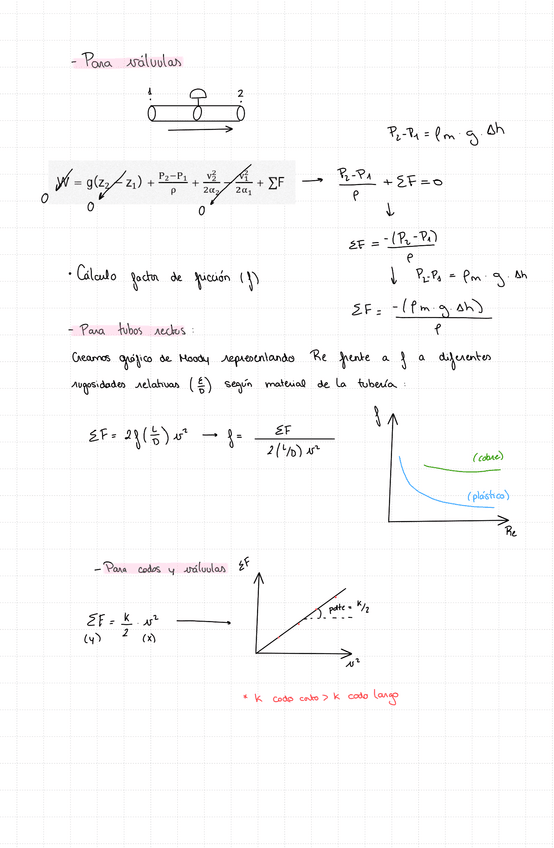 - Para válvulas
1 2
P₂-P₁ = ρm · g · Δh
W = g(z₂ - z₁) + (P₂-P₁)/ρ + v₂²/2α₂ - v₁²/2α₁ + ∑F → (P₂-P₁)/ρ + ΣF = 0
0 0 0
↓
ΣF = -(P₂-P₁)/ρ
↓ P₂-P₁ = ρm · g · Δh
· Cálculo factor de fricción (f)
ΣF = -(ρm · g · Δh)/ρ
- Para tubos rectos :
Creamos gráfico de Moody representando Re frente a f a diferentes
rugosidades relativas (ε/D) según material de la tubería :
ΣF = 2f(L/D) v² → f = ΣF/(2(L/D) v²)
f
(cobre)
(plástico)
Re
- Para codos y válvulas
ΣF
ΣF = K/2 · v²
(y) (x)
pdte = K/2
v²
* K codo corto > K codo largo